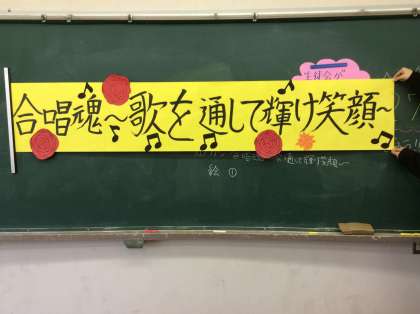 生徒会が
合唱魂～歌を通して輝け笑顔～
通して輝け笑顔～
絵 ①